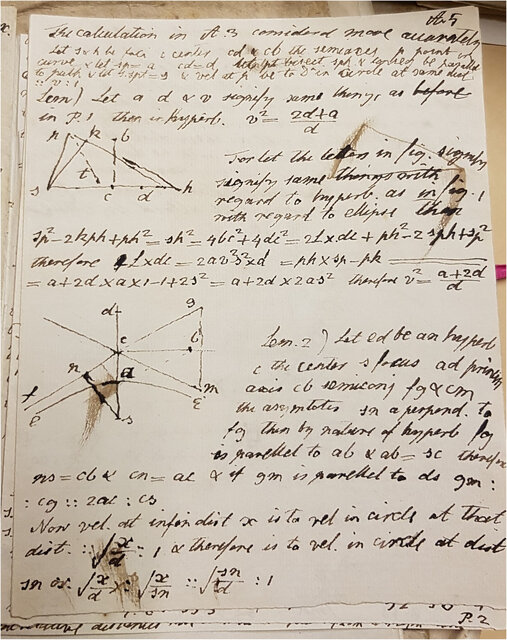 A.5
The calculation in A.3 considerd more accurately
Let s & h be foci c center cd & cb the semiaxes p point in
curve & let sp = a cd = d bisect sph & be parallel
to path & let = s & vel at p be to D° in circle at same dist
:: v : 1
Lem) Let a d & v signify same things as before
in P.1 then in hyperb. v² = 2d+a / d
p k b
t
s c d h
For let the letters in fig. signify
signify same things with
regard to hyperb. as in fig. 1
with regard to ellipse then
sp² - 2kph + ph² = sh² = 4bc² + 4dc² = 2L×dc + ph² - 2sph + sp²
therefore L×dc = 2av²s²×d = ph × sp - pk
= a+2d × a × 1-1+2s² = a+2d × 2as² therefore v² = a+2d / d
d g
c b
n a
f m
e s E
Lem. 2) Let ed be an hyperb
c the center s focus ad princip
axis cb semiconj fg & cm
the asymtotes sn a perpend. to
fg then by nature of hyperb fg
is parellel to ab & ab = sc therefore
ns = cb & cn = ac & if gm is parellel to ds gm :
: cg :: 2ac : cs
Now vel. at infin dist x is to vel in circle at that
dist :: √x/d : 1 & therefore is to vel. in circle at dist
sn as √x/d : √x/sn :: √sn/d : 1
P.2